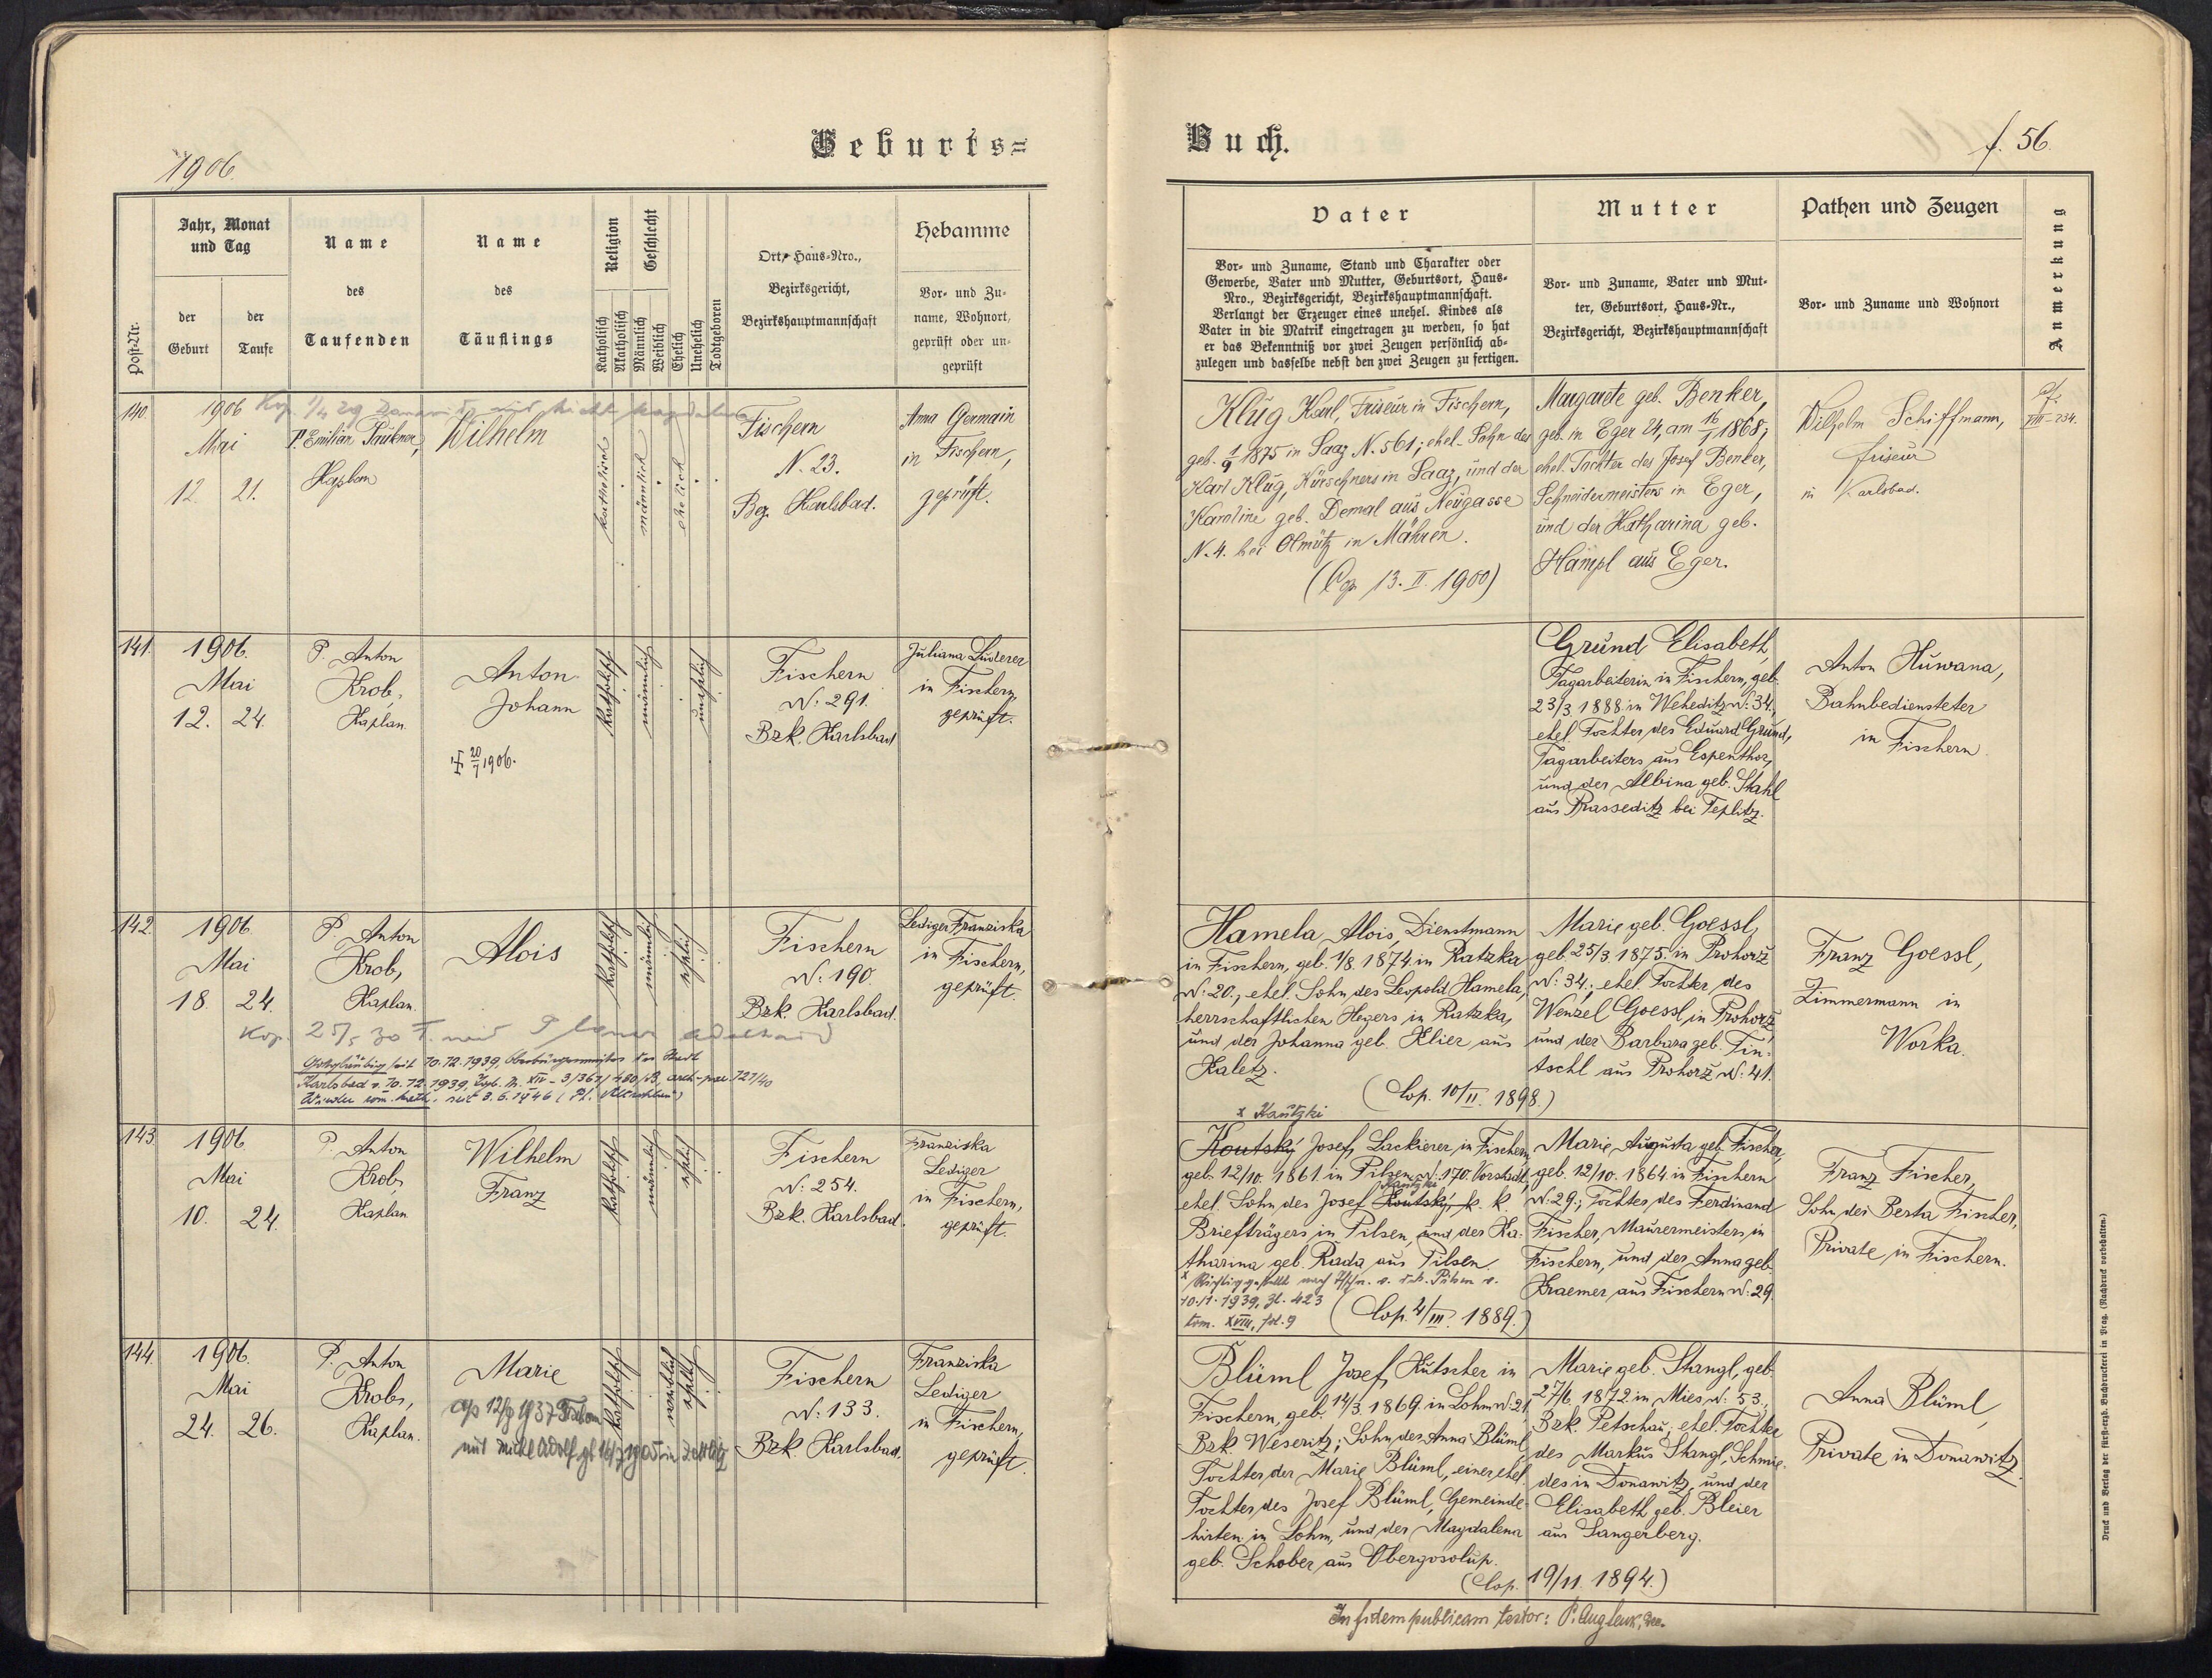 1906.
Geburts=
Post-Nr.
Jahr, Monat
und Tag
der
Geburt
der
Taufe
Name
des
Taufenden
Name
des
Täuflings
Religion
Katholisch
Akatholisch
Geschlecht
Männlich
Weiblich
Ehelich
Unehelich
Todtgeboren
Ort, Haus-Nro.,
Bezirksgericht,
Bezirkshauptmannschaft
Hebamme
Vor- und Zu-
name, Wohnort,
geprüft oder un-
geprüft
140
1906
Mai
12. 21.
P. Emilian
Kaplan
Wilhelm
katholisch
männlich
ehelich
Fischern
N. 23.
Bez. Karlsbad.
Anna Germain
in Fischern,
geprüft.
141.
1906.
Mai
12. 24.
P. Anton
Krob,
Kaplan.
Anton
Johann
† 20/7 1906.
katholisch
männlich
unehelich
Fischern
N: 291.
Bzk. Karlsbad
Juliana Luderer
in Fischern,
geprüft.
142.
1906.
Mai
18. 24.
P. Anton
Krob,
Kaplan.
Alois
katholisch
männlich
ehelich
Fischern
N: 190.
Bzk. Karlsbad.
Lediger Franziska
in Fischern,
geprüft.
Kop. 25/5 30
Gottgläubig seit 10.12.1939, Oberbürgermeister der Stadt
Karlsbad v. 10.12.1939,
Wieder röm. kath. seit 3.6.1946
143
1906
Mai
10. 24.
P. Anton
Krob,
Kaplan
Wilhelm
Franz
katholisch
männlich
ehelich
Fischern
N: 254.
Bzk. Karlsbad.
Franziska
Lediger
in Fischern,
geprüft.
144.
1906.
Mai
24. 26.
P. Anton
Krob,
Kaplan.
Marie
1937
mit
katholisch
weiblich
ehelich
Fischern
N: 133.
Bzk. Karlsbad.
Franziska
Lediger
in Fischern,
geprüft.
Buch.
f. 56.
Vater
Vor- und Zuname, Stand und Charakter oder
Gewerbe, Vater und Mutter, Geburtsort, Haus-
Nro., Bezirksgericht, Bezirkshauptmannschaft.
Verlangt der Erzeuger eines unehel. Kindes als
Vater in die Matrik eingetragen zu werden, so hat
er das Bekenntniß vor zwei Zeugen persönlich ab-
zulegen und dasselbe nebst den zwei Zeugen zu fertigen.
Mutter
Vor- und Zuname, Vater und Mut-
ter, Geburtsort, Haus-Nr.,
Bezirksgericht, Bezirkshauptmannschaft
Pathen und Zeugen
Vor- und Zuname und Wohnort
Anmerkung
Klug Karl, Friseur in Fischern,
geb. 1/9 1875 in Saaz N. 561; ehel. Sohn des
Karl Klug, Kürschners in Saaz, und der
Karoline geb. Demal aus Neugasse
N. 4. bei Olmütz in Mähren.
(Cop. 13. II. 1900)
Margarete geb. Benker,
geb. in Eger 24, am 16/1 1868;
ehel. Tochter des Josef Benker,
Schneidermeisters in Eger,
und der Katharina geb.
Hampl aus Eger.
Wilhelm Schiffmann,
Friseur
in Karlsbad.
cf.
VIII-234.
Grund Elisabeth,
Tagarbeiterin in Fischern, geb.
23/3 1888 in Weheditz N: 34.,
ehel. Tochter des Eduard Grund,
Tagarbeiters aus Espenthor,
und der Albina geb. Stahl
aus Prasseditz bei Teplitz.
Anton Huwana,
Bahnbediensteter
in Fischern.
Hamela Alois, Dienstmann
in Fischern, geb. 1/8. 1874. in Ratzka
N: 20., ehel. Sohn des Leopold Hamela,
herrschaftlichen Hegers in Ratzka,
und der Johanna geb. Klier aus
Kaletz.
(Cop. 10/II. 1898.)
Marie geb. Goessl,
geb. 25/3. 1875. in Prohorž
N: 34.; ehel. Tochter des
Wenzel Goessl, in Prohorž,
und der Barbara geb. Tin-
tschl aus Prohorž N: 41.
Franz Goessl,
Zimmermann in
Worka.
x Kautzki
Koutský Josef, Lackierer, in Fischern,
geb. 12/10. 1861. in Pilsen N: 170. Vorstadt,
Kautzki
ehel. Sohn des Josef Koutský, k. k.
Briefträgers in Pilsen, und der Ka-
tharina geb. Rada aus Pilsen.
x Richtiggestellt nach
10.11.1939, Zl. 423
tom. XVIII, fol. 9
(Cop. 4/III. 1889.)
Marie Augusta geb. Fischer,
geb. 12/10. 1864. in Fischern
N: 29.; Tochter des Ferdinand
Fischer, Maurermeisters in
Fischern, und der Anna geb.
Kraemer aus Fischern N: 29.
Franz Fischer,
Sohn der Berta Fischer,
Private in Fischern.
Blüml Josef, Kutscher in
Fischern, geb. 14/3. 1869. in Lohm N: 21,
Bzk. Weseritz; Sohn der Anna Blüml,
Tochter der Marie Blüml, einer ehel.
Tochter des Josef Blüml, Gemeinde-
hirten in Lohm, und der Magdalena
geb. Schober aus Obergosolup.
(Cop. 19/11. 1894.)
Marie geb. Stangl, geb.
27/6. 1872. in Mies N: 53.,
Bzk. Petschau; ehel. Tochter
des Markus Stangl, Schmie-
des in Donawitz, und der
Elisabeth geb. Bleier
aus Sangerberg.
Anna Blüml,
Private in Donawitz.
In fidem publicam testor:
Druck und Verlag der fürsterzb. Buchdruckerei in Prag. (Nachdruck vorbehalten.)